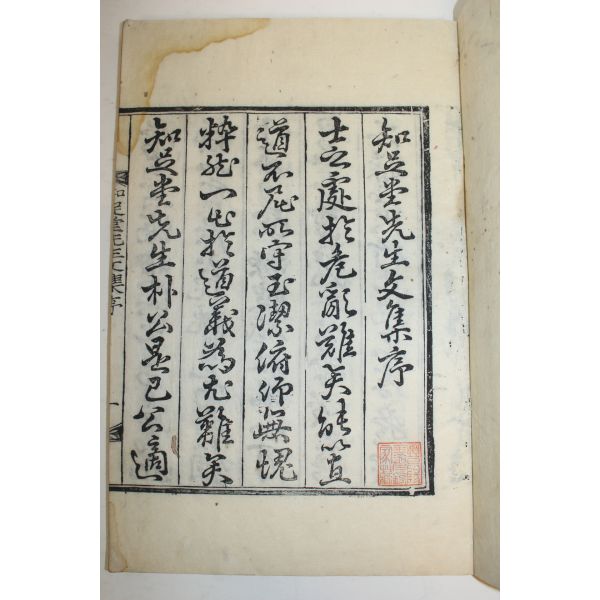 知足堂先生文集序
士之處於危亂難矣能直
道不屈所守玉潔俯仰無愧
粹然一出於道義為尤難矣
知足堂先生朴公是已公適
知足堂先生文集序
一